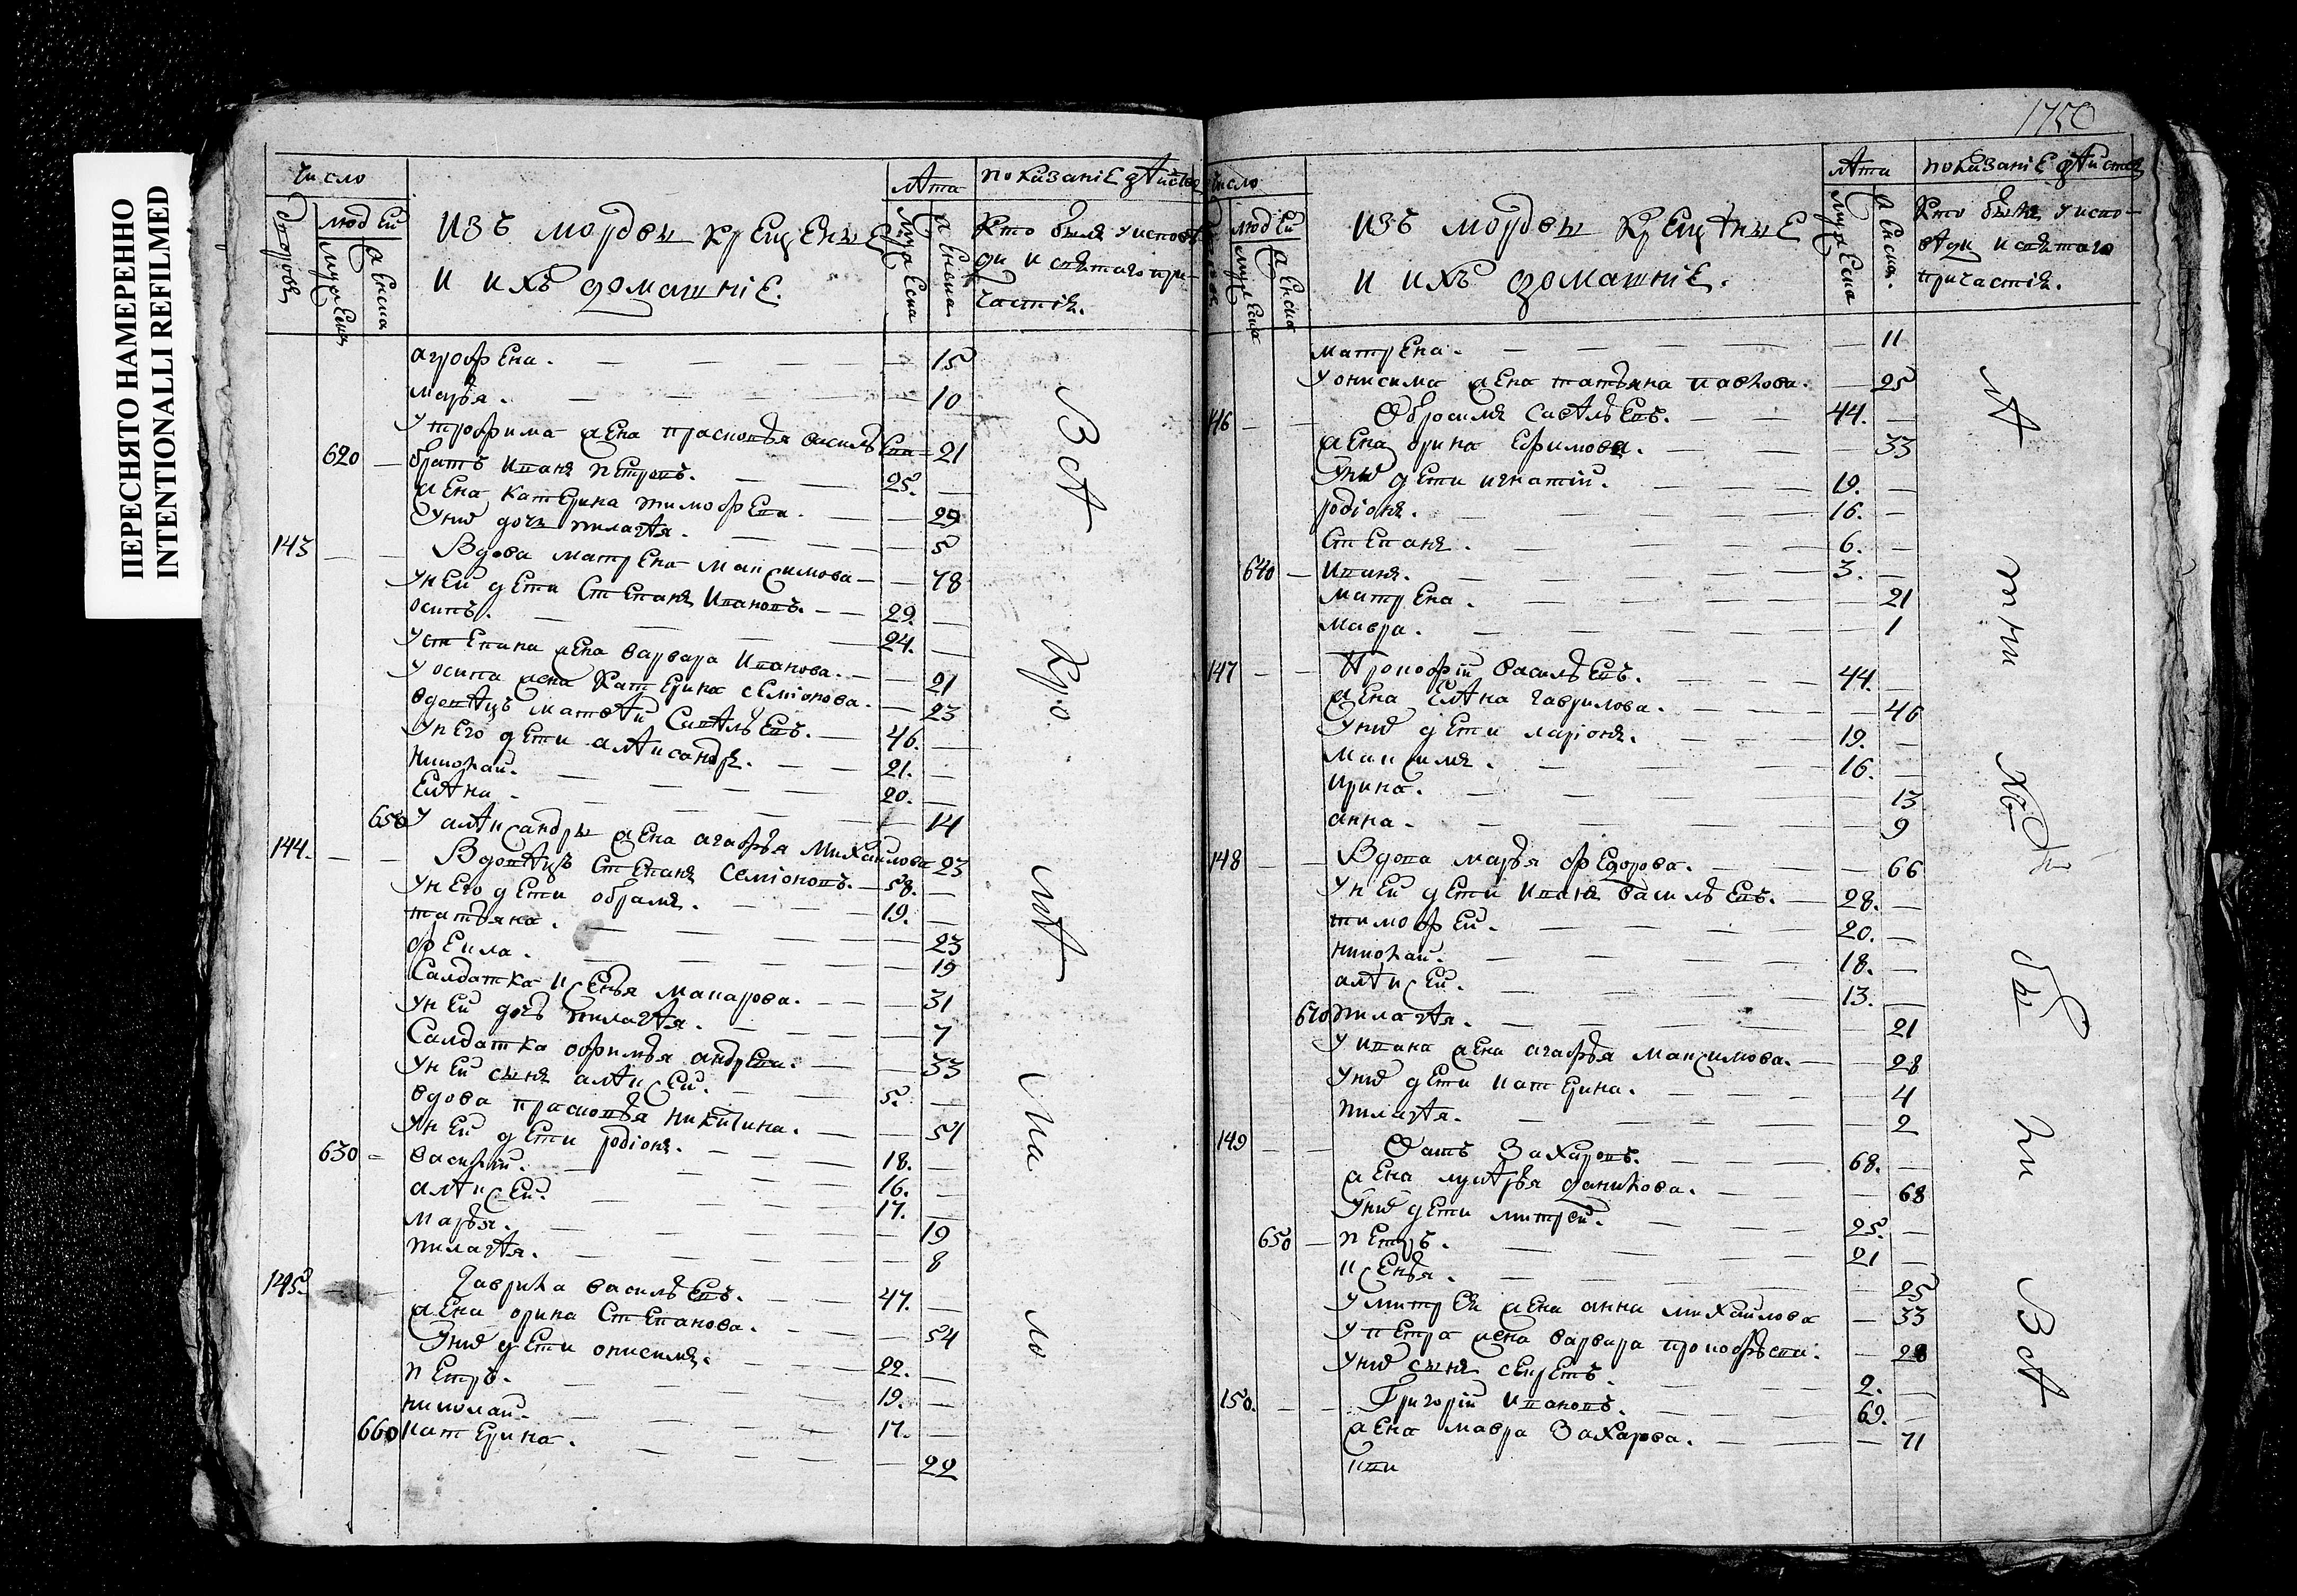 ПЕРЕСНЯТО НАМЕРЕННО
INTENTIONALLI REFILMED
число
людей
изъ мордвы крещеные
и ихъ домашнїе.
лѣта
показанїе дѣиства
кто былъ у исповѣ
ди и свѣтаго при-
частїя.
агрофена. 15
марья. 10
у трофима жена прасковья васильева 21
620 братъ иванъ петровъ. 25.
жена катерина тимофѣева. 29
У них дочь пилагѣя. 5
143 Вдова матрена максимова 78
у ней дети степанъ ивановъ. 29.
осипъ. 24.
у степана жена варвара иванова. 21
у осипа жена катерина семїонова. 23
вдовѣцъ матвѣй савѣльевъ. 46.
у него дети алѣксандръ. 21.
николай. 20.
елѣна. 14
650 у алѣксандры жена агафья михайлова 23
144. Вдовѣцъ степанъ семїоновъ. 58.
у него дети обрамъ. 19.
татьяна. 23
фекла. 19
салдатка ксенья макарова. 31
у ней дочь пилагѣя. 7
салдатка офимья андреева. 33
у ней сынъ алѣксей. 5.
вдова прасковья никитина. 51
у ней дети родїонъ. 18.
630 василїй. 16.
алѣксей. 17.
марья. 19
пилагѣя. 8
145. гаврила васильевъ. 47.
жена орина степанова. 54
У них дети онисимъ. 22.
петръ. 19.
николай. 17.
660 катерина. 22
1750
число
людей
изъ мордвы крещѣные
и ихъ домашнїе.
лѣта
показанїе дѣиства
кто былъ у испо-
вѣди и свѣтаго
причастїя.
матрена. 11
у онисима жена татьяна павлова. 25
146 Обросимъ савѣльевъ. 44.
жена орина ефимова. 33
У них дети игнатїй. 19.
родїонъ. 16.
степанъ. 6.
640 иванъ. 3.
матрена. 21
мавра. 1
147 Прокофїй васильевъ. 44.
жена елѣна гаврилова. 46
У них дети ларїонъ. 19.
максимъ. 16.
ирина. 13
анна. 9
148 Вдова марья федорова. 66
у ней дети иванъ васильевъ. 28.
тимофей. 20.
николай. 18.
алѣксей. 13.
670 пилагѣя. 21
у ивана жена агафья максимова. 28
У них дети катерина. 4
пилагѣя. 2
149 Фатъ Захаровъ. 68.
жена лукѣрья данилова. 68
У них дети митрей. 25.
650 петръ. 21
ксенья. 25
у митрея жена анна михайлова 33
у петра жена варвара прокофьева. 28
У них сынъ 2.
150. Григорїй ивановъ. 69.
жена мавра Захарова. 71